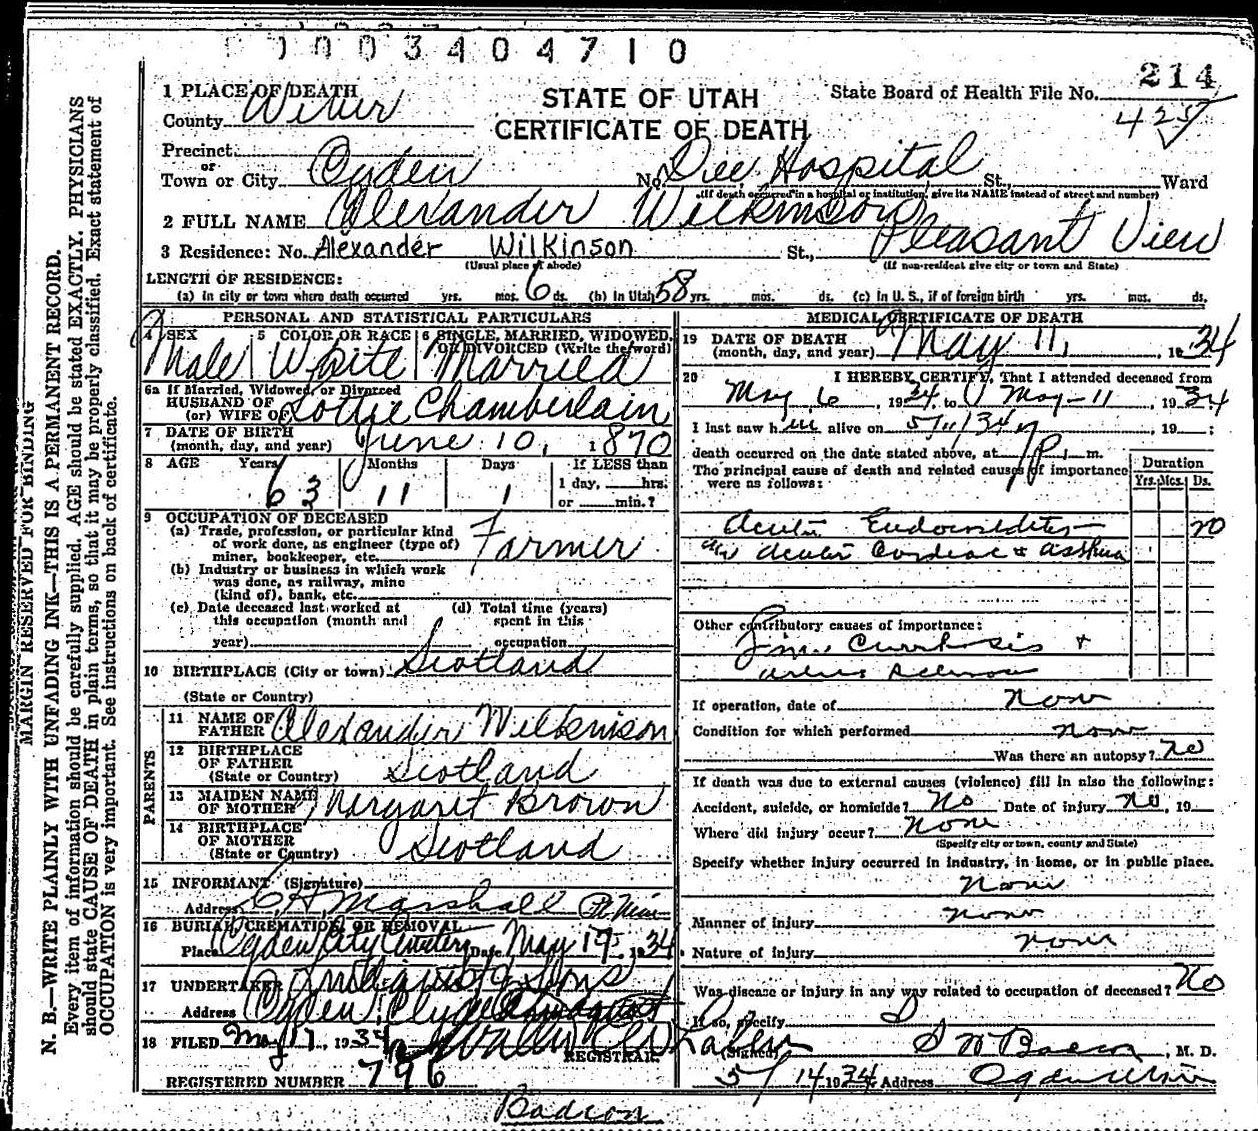 0003404710
214
1 PLACE OF DEATH
County Weber
STATE OF UTAH
CERTIFICATE OF DEATH
State Board of Health File No.
425
Precinct
or
Town or City Ogden No. Dee Hospital St., Ward
(If death occurred in a hospital or institution, give its NAME instead of street and number)
2 FULL NAME Alexander Wilkinson
3 Residence: No. Alexander Wilkinson St., Pleasant View
(Usual place of abode) (If non-resident give city or town and State)
LENGTH OF RESIDENCE:
(a) in city or town where death occurred yrs. mos. 6 ds. (b) in Utah 58 yrs. mos. ds. (c) in U. S., if of foreign birth yrs. mos. ds.
PERSONAL AND STATISTICAL PARTICULARS
4 SEX 5 COLOR OR RACE 6 SINGLE, MARRIED, WIDOWED,
OR DIVORCED (Write the word)
Male White Married
6a If Married, Widowed, or Divorced
HUSBAND OF
(or) WIFE OF Lottie Chamberlain
7 DATE OF BIRTH
(month, day, and year) June 10, 1870
8 AGE Years Months Days If LESS than
1 day, hrs.
or min.?
63 11 1
9 OCCUPATION OF DECEASED
(a) Trade, profession, or particular kind
of work done, as engineer (type of)
miner, bookkeeper, etc. Farmer
(b) Industry or business in which work
was done, as railway, mine
(kind of), bank, etc.
(c) Date deceased last worked at
this occupation (month and
year)
(d) Total time (years)
spent in this
occupation
10 BIRTHPLACE (City or town) Scotland
(State or Country)
PARENTS
11 NAME OF
FATHER Alexander Wilkinson
12 BIRTHPLACE
OF FATHER
(State or Country) Scotland
13 MAIDEN NAME
OF MOTHER Margaret Brown
14 BIRTHPLACE
OF MOTHER
(State or Country) Scotland
15 INFORMANT (Signature)
Address C H Marshall
16 BURIAL, CREMATION, OR REMOVAL
Place Ogden City Cemetery Date May 1934
17 UNDERTAKER & Sons
Address Ogden, Clyde
18 FILED May 17, 1934
REGISTRAR
REGISTERED NUMBER 796
MEDICAL CERTIFICATE OF DEATH
19 DATE OF DEATH
(month, day, and year) May 11, 1934
20 I HEREBY CERTIFY, That I attended deceased from
May 6, 1934, to May 11, 1934
I last saw him alive on 5/11/34, 19 ;
death occurred on the date stated above, at 1 P. m.
The principal cause of death and related causes of importance
were as follows:
Duration
Yrs. Mos. Ds.
Acute Endocarditis 20
acute Cardiac & asthma
Other contributory causes of importance:
&
If operation, date of none
Condition for which performed none
Was there an autopsy? no
If death was due to external causes (violence) fill in also the following:
Accident, suicide, or homicide? No Date of injury no, 19
Where did injury occur? None
(Specify city or town, county and State)
Specify whether injury occurred in industry, in home, or in public place.
None
Manner of injury none
Nature of injury none
Was disease or injury in any way related to occupation of deceased? No
If so, specify
(Signed) , M. D.
5/14 1934 Address Ogden Utah
MARGIN RESERVED FOR BINDING
N. B.—WRITE PLAINLY WITH UNFADING INK—THIS IS A PERMANENT RECORD.
Every item of information should be carefully supplied. AGE should be stated EXACTLY. PHYSICIANS
should state CAUSE OF DEATH in plain terms, so that it may be properly classified. Exact statement of
OCCUPATION is very important. See instructions on back of certificate.